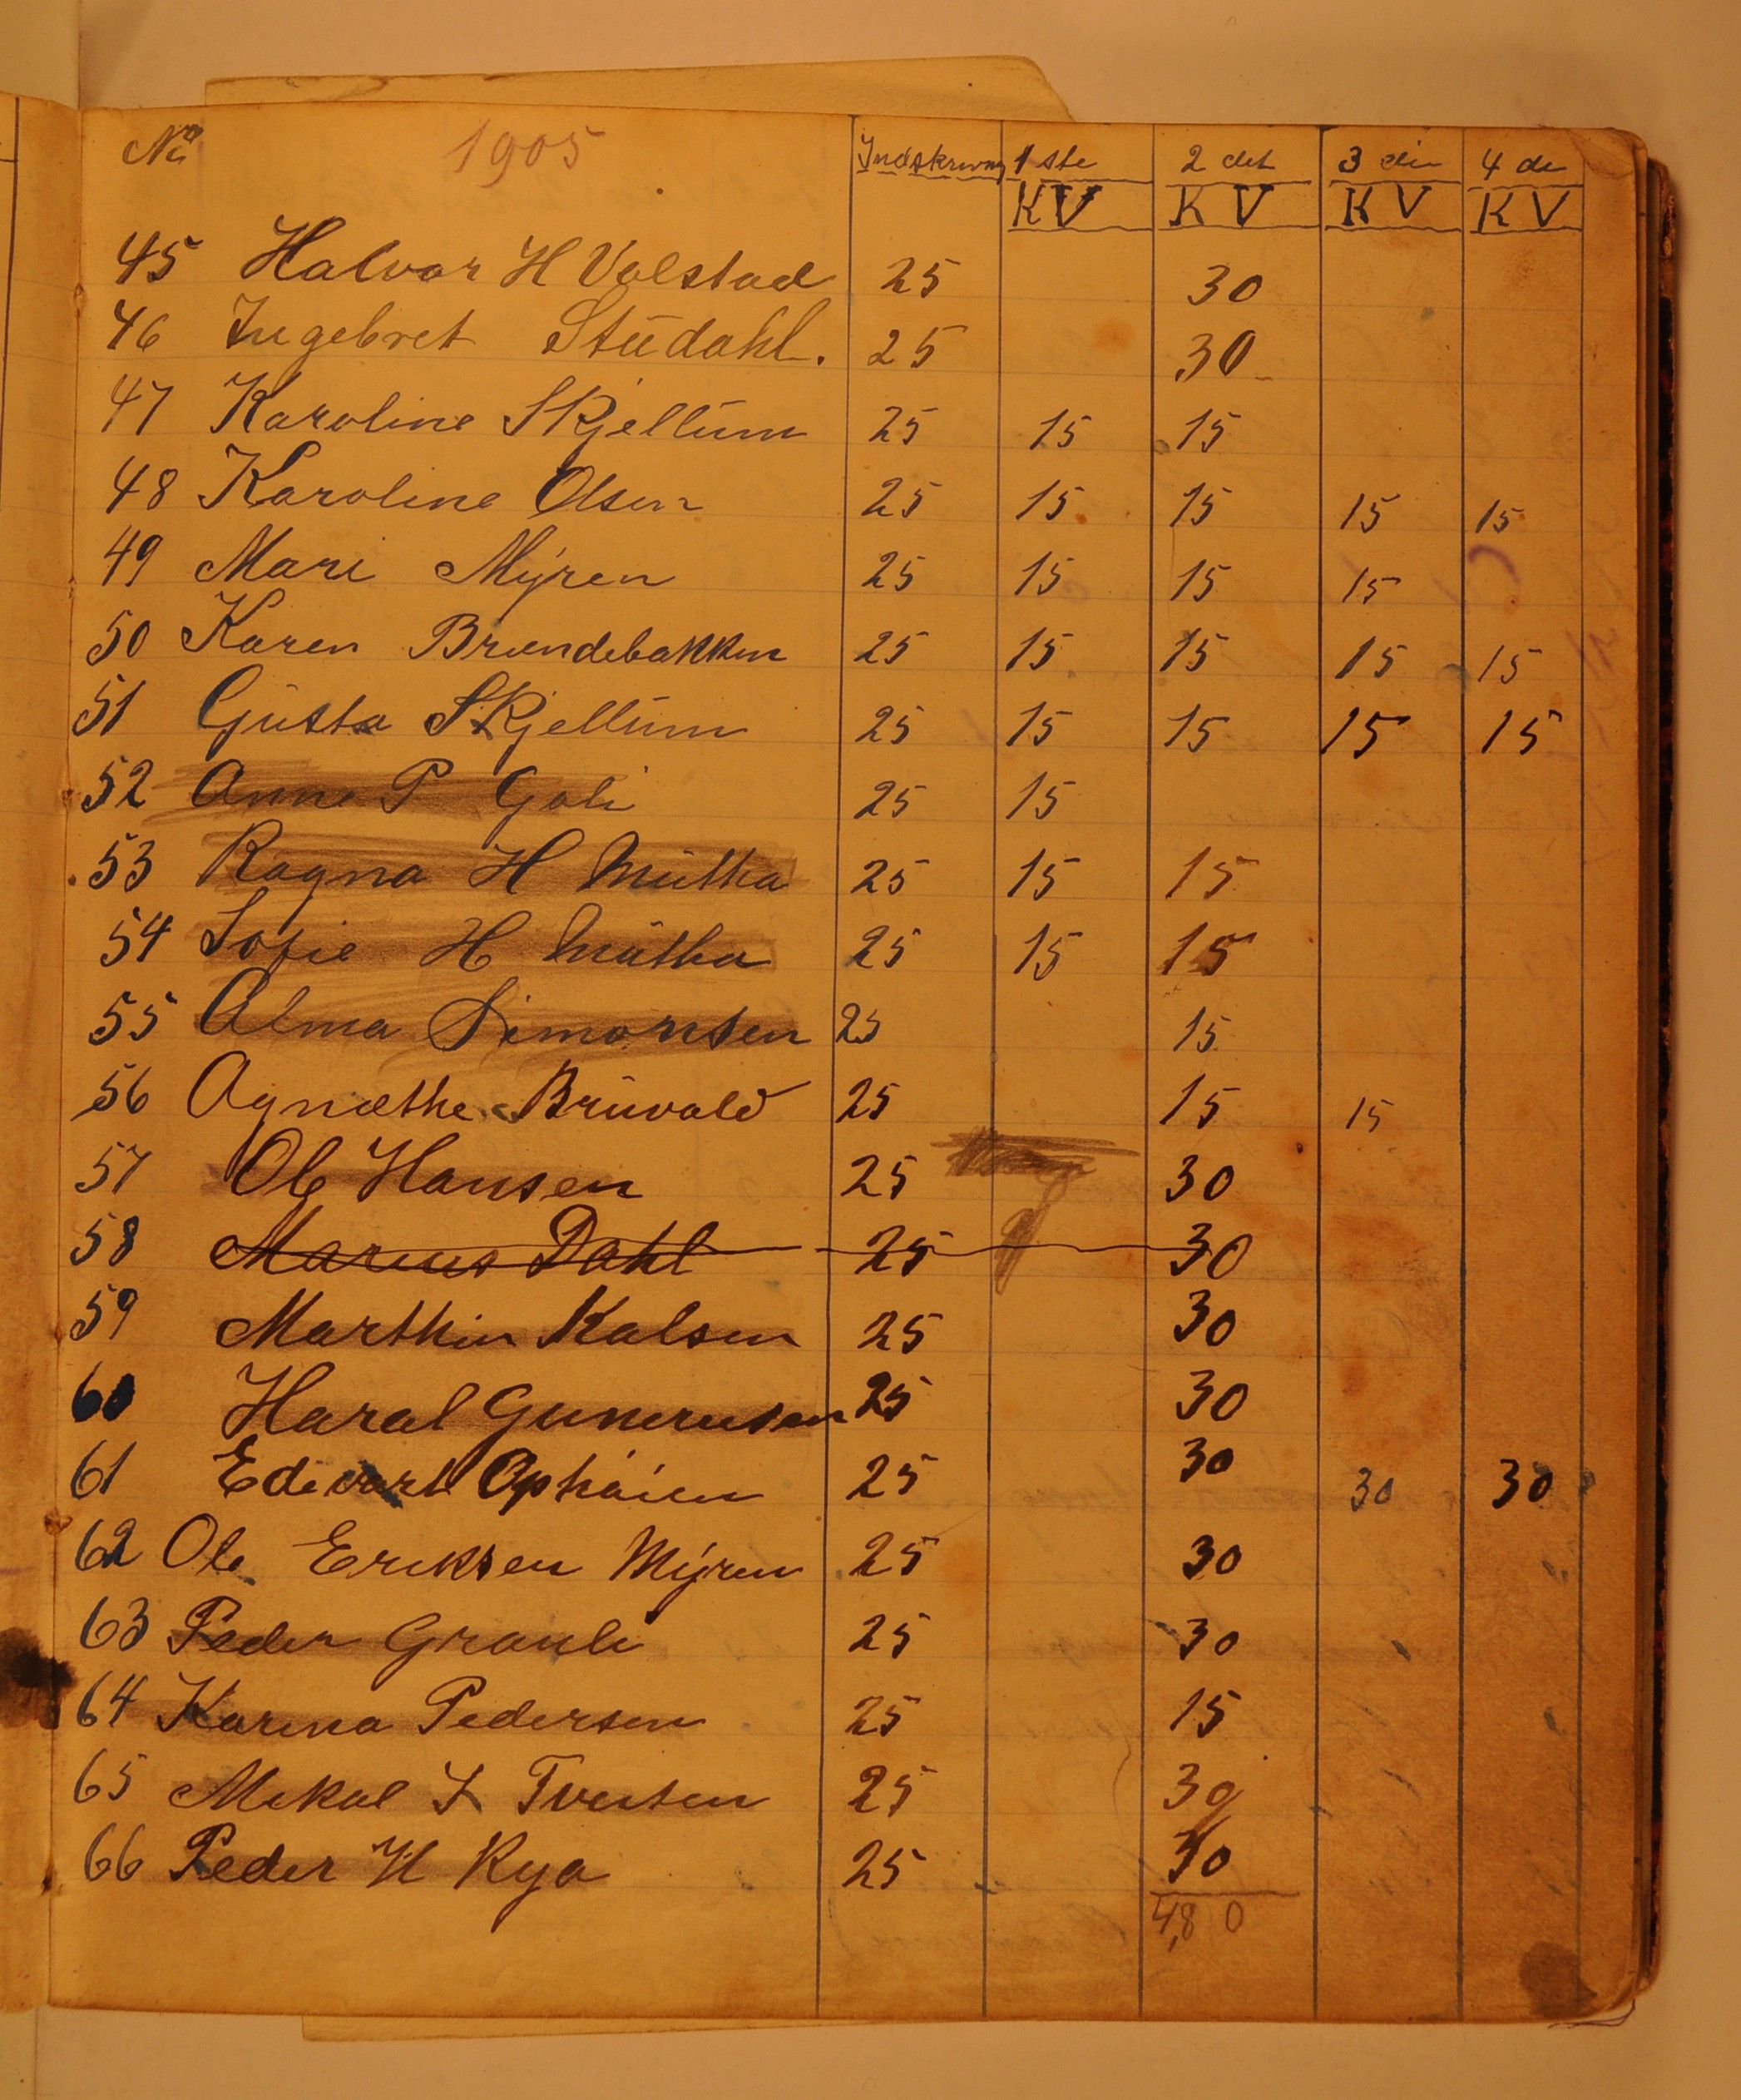 No 1905 Indskrivning 1 ste 2 det 3 die 4 de
KV KV KV KV
45 Halvor H Volstad 25 30
46 Ingebret Stüdahl. 25 30
47 Karoline Skjellüm 25 15 15
48 Karoline Olsen 25 15 15 15 15
49 Mari Myren 25 15 15 15
50 Karen Brændebakken 25 15 15 15 15
51 Güsta Skjellüm 25 15 15 15 15
52 Anne P Goli 25 15
53 Ragna H Mütka 25 15 15
54 Sofie H Mütka 25 15 15
55 Alma Simonsen 25 15
56 Agnæthe Brüvold 25 15 15
57 Ole Hansen 25 30
58 Marius Dahl 25 30
59 Marthin Kalsen 25 30
60 Haral Gunerusen 25 30
61 Edevart Ophaien 25 30 30 30
62 Ole Eriksen Myren 25 30
63 Peder Grauli 25 30
64 Karina Pedersen 25 15
65 Mekal I Tveiten 25 30
66 Peder H Rya 25 30
4,80